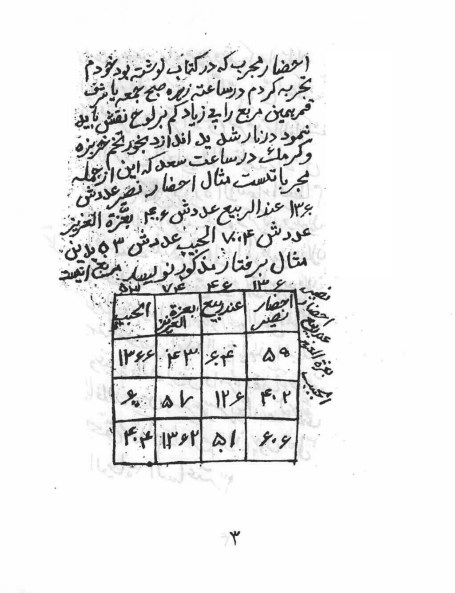 احضار مجرب که در کتاب نوشته بود خودم
تجربه کردم در ساعت زهره صبح جمعه یا شرف
قمر همین مربع را بی زیاد کم بر لوح نقش باید
نمود در نار شدید اندازد بخور تخم خربزه
و کرملک در ساعت سعد که این از جمله
مجربا تست مثال احضار نصیر عددش
۱۳۶ عند الربیع عددش ۴۰۶ بعزة العزیز
عددش ۷۰۴ الحبیب عددش ۵۳ بدین
مثال برفتار مذکور نویسد مربع اینست
۵۳ ۷۰۴ ۴۰۶ ۱۳۰۶
احضار نصیر عند ربیع بعزة العزیز الحبیب
۵۹ ۶۰۴ ۴۳ ۱۳۶۶
۴۰۲ ۱۲۶ ۵۷ ۶۰
۶۰۶ ۵۱ ۱۳۶۲ ۴۰۴
نصیب
احضار
عند ربیع
بعزة العزیز
الحبیب
۳